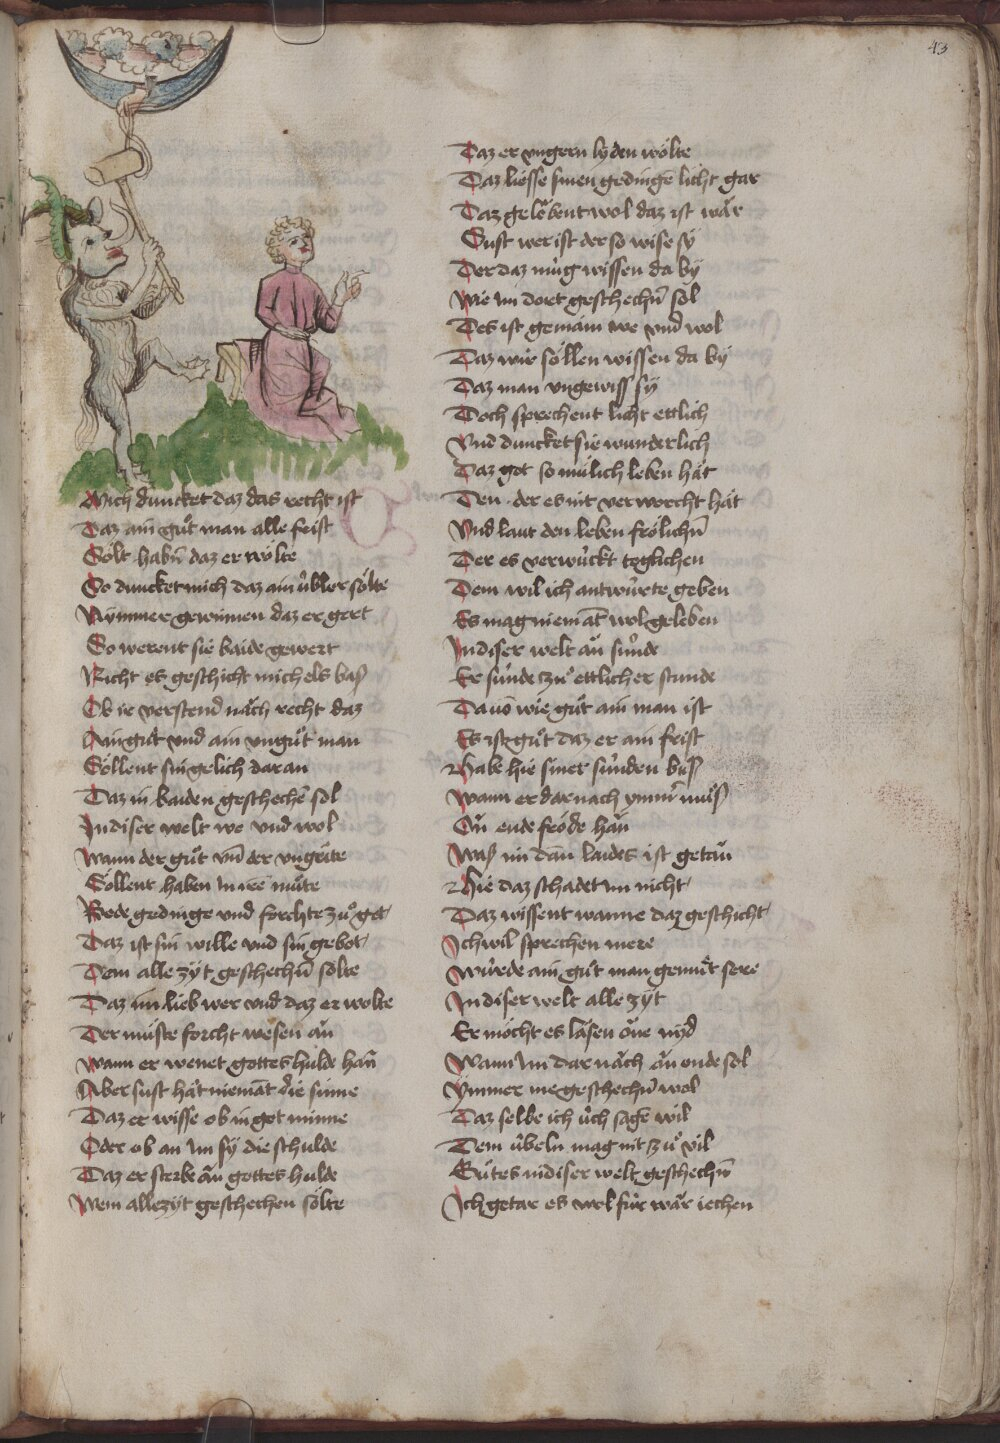 43
Mich duncket daz das recht ist
Daz ain guͦt man alle frist
Soͤlt habn̄ daz er woͤlte
So duncket mich daz ain uͤbler soͤlte
Nymmer gewinnen daz er gert
So werent sie baide gewert
Nicht es geschicht michels baß
Ob ir verstend naͮch recht daz
Ain guͦt vnd ain vnguͦt man
Soͤllent sin gelich daran
Daz in baiden geschechē sol
In diser welt we vnd wol
Wann der guͦt vn̄ der vnguͤte
Soͤllent haben in irē muͦte
Bede gedinge vnd forchte zuͦ got
Daz ist sin wille vnd sin gebot
Dem alle zyt geschechn̄ soͤlte
Daz im lieb wer vnd daz er wolte
Der muͤste forcht wesen aͮn
Wann er wenet gottes hulde han̄
Aber sust hat niemāt die sinne
Daz er wisse ob in got minne
Oder ob an im sy die schulde
Daz er sterbe aͮn gottes hulde
Wem allezyt geschechen soͤlte
Daz er vngern lyden woͤlte
Daz liesse sinen gedingē licht gar
Daz geloͮbent wol daz ist waͮr
Sust wer ist der so wise sy
Der daz muͤg wissen da by
Wie im dort geschechn̄ sol
Des ist gemain we vnd wol
Daz wir soͤllen wissen da by
Daz man vngewiss sy
Doch sprechent licht ettlich
Vnd duncket sie wunderlich
Daz got so milich leben hat
Den der es nit verworcht hat
Vnd laut den leben froͤlichn̄
Der es verwuͤrckt toͤglichen
Dem wil ich antwuͤrte geben
Es mag niemāt wol geleben
In diser welt aͮn suͤnde
Er suͤnde zuͦ ettlicher stunde
Da vō wie guͦt ain man ist
Es ist guͦt daz er ain frist
Habe hie siner suͤnden buͦß
Wann er darnach ymm̄ muͦß
Oͮn ende froͤde haͮn
Waß im dan̄ laides ist getaͮn
Hie daz schadet im nicht
Daz wissent wanne daz geschicht
Ich wil sprechen mere
Wuͤrde ain guͦt man gemuͤt sere
In diser welt alle zyt
Er moͤcht es laͮsen oͮne nyd
Wann im dar naͮch aͮn ende sol
Ymmer me geschechn̄ wol
Daz selbe ich uͤch sagē wil
Dem uͤbeln mag nit zuͦ vil
Guͦtes in diser welt geschechn̄
Ich getar es wol fuͤr waͮr iechen